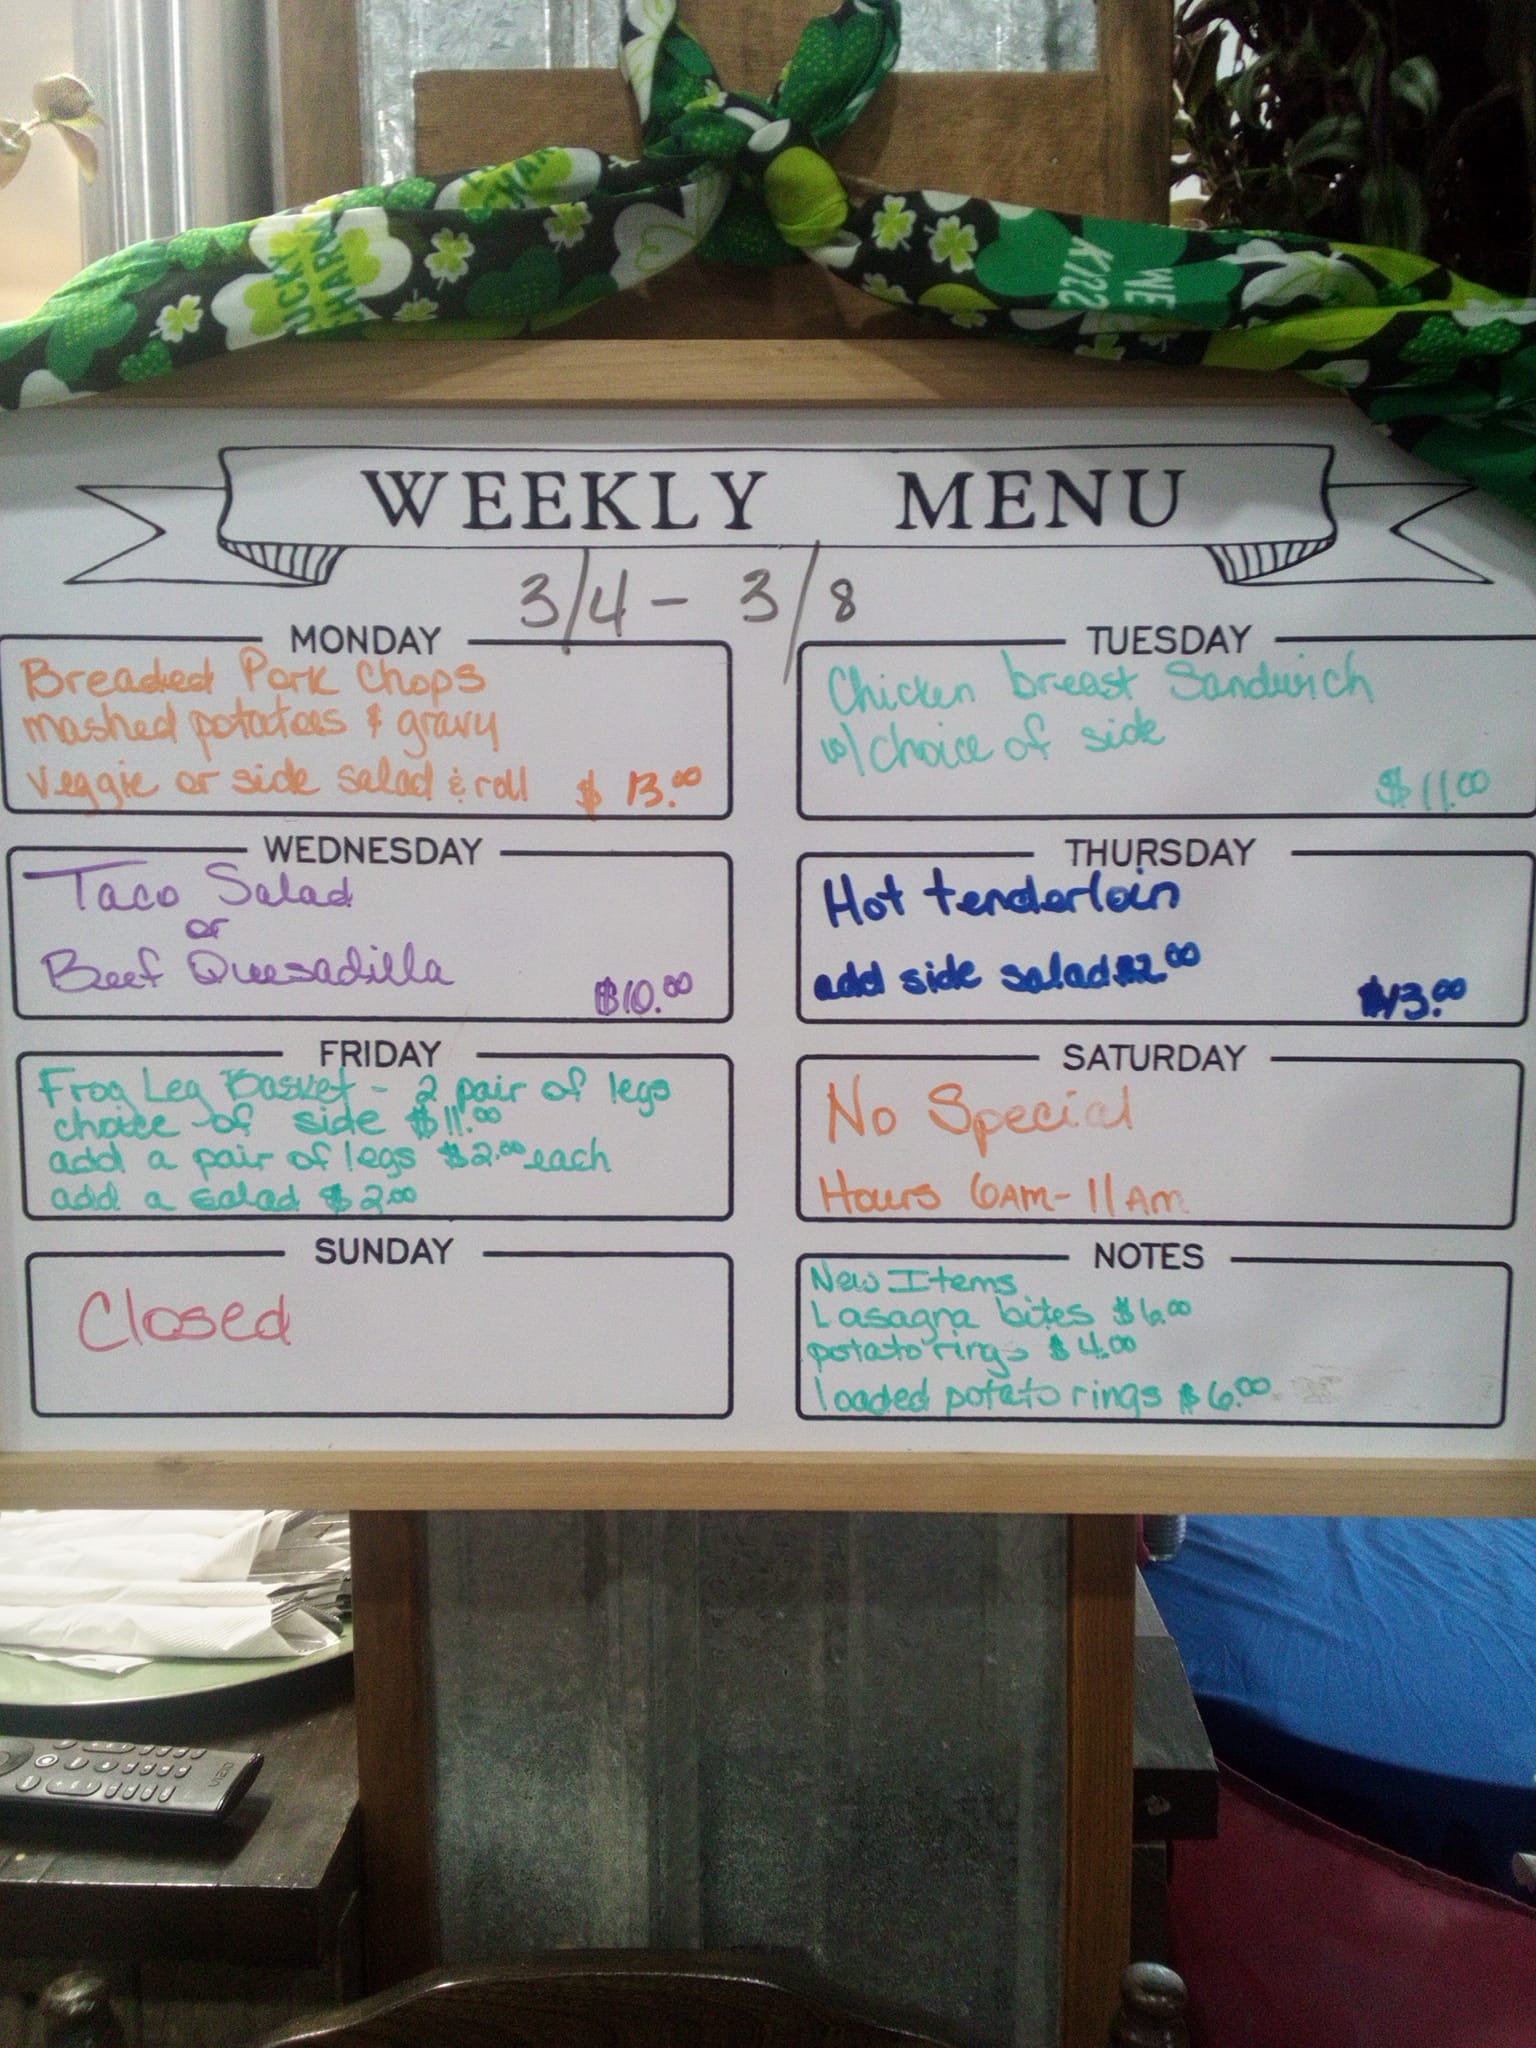 LUCKY CHARM
CHARM
WE KISS
WEEKLY MENU
3/4 - 3/8
MONDAY
Breaded Pork Chops
mashed potatoes & gravy
Veggie or side salad & roll $13.00
TUESDAY
Chicken breast Sandwich
w/ choice of side
$11.00
WEDNESDAY
Taco Salad
or
Beef Quesadilla
$10.00
THURSDAY
Hot tenderloin
add side salad $2.00
$13.00
FRIDAY
Frog Leg Basket - 2 pair of legs
choice of side $11.00
add a pair of legs $2.00 each
add a salad $2.00
SATURDAY
No Special
Hours 6AM-11AM
SUNDAY
Closed
NOTES
New Items
Lasagna bites $6.00
potato rings $4.00
loaded potato rings $6.00
VIZIO